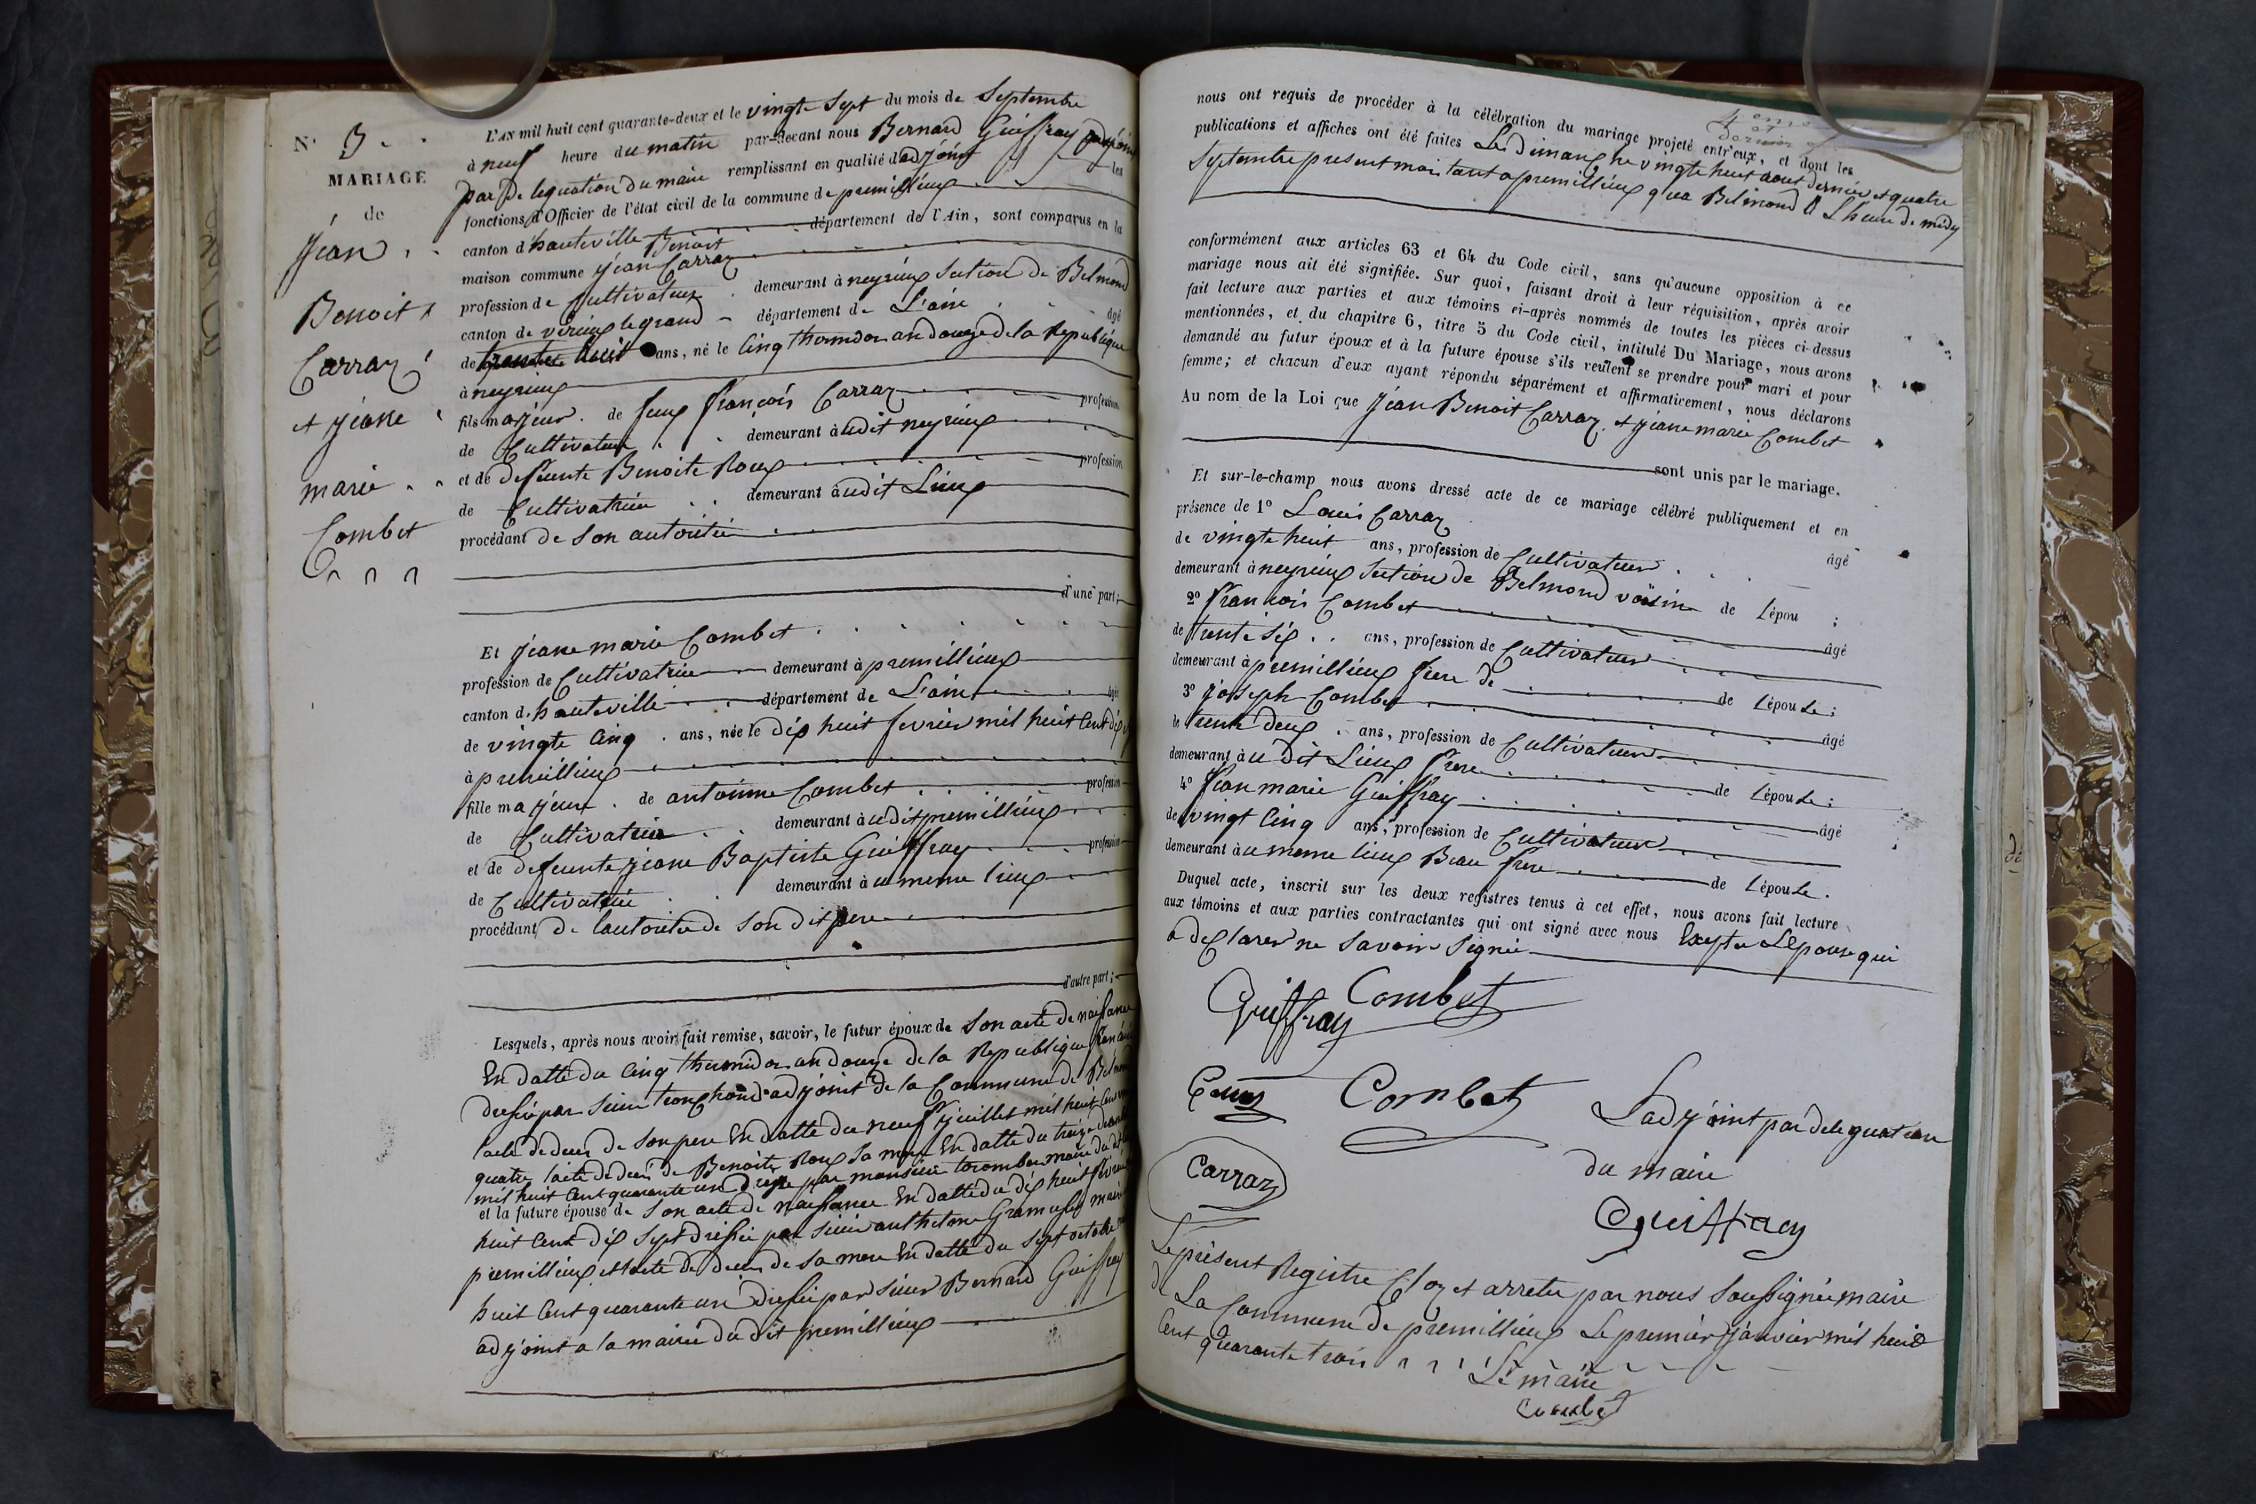 N° 3
MARIAGE
de
Jéan
Benoit
Carraz
et jéane
marie
Combet
L'AN mil huit cent quarante-deux et le vingte Sept du mois de Septembre
à neuf heure du matin par-devant nous Bernard Guiffray
par De leguation du maire remplissant en qualité d'adjoint les
fonctions d'Officier de l'état civil de la commune de premillieux
canton d'hauteville département de l'Ain, sont comparus en la
maison commune jéan Benoit Carraz
profession de Cultivateur demeurant à neyrieux Section de Belmond
canton de virieux le grand département de L'ain âgé
de trente huit ans, né le Cinq thermidor an douze de la Republique
à neyrieux
fils majeur de feux francois Carraz profession
de Cultivateur demeurant àudit neyrieux
et de defeunte Benoite Roux profession
de Cultivatrice demeurant àudit Lieux
procédant de Son autorité
d'une part;
Et jéane marie Combet
profession de Cultivatrice demeurant à premillieux
canton d'hauteville département de L'ain âgée
de vingte Cinq ans, née le dix huit fevrier mil huit Cent dix
à premillieux
fille majeure de antoinne Combet profession
de Cultivateur demeurant àudit premillieux
et de defeunte jéane Baptiste Guiffray profession
de Cultivatrice demeurant àu meme lieux
procédant de lautorité de Son dit pere
d'autre part;
Lesquels, après nous avoir fait remise, savoir, le futur époux de Son acte de naissance
En datte du Cinq thermidor an douze de la Republique francaise
dressé par Sieur adjoint de la Commune de Belmond
lacte de deces de Son pere En datte du neuf juillet mil huit Cent
quatre lacte de deces de Benoite Roux Sa mere En datte du treize
mil huit Cent quarante un Dressé par monsieur maire du dit
et la future épouse de Son acte de naissance En datte du dix huit fevrier
huit Cent dix Sept dressé par Sieur anthelme maire
premillieux et lacte de deces de Sa mere En datte du Sept octobre
huit Cent quarante un dressé par Sieur Bernard Guiffray
adjoint a la mairie du dit premillieux
nous ont requis de procéder à la célébration du mariage projeté entr'eux, et dont les
publications et affiches ont été faites Les Dimanche vingte huit aout dernier et quatre
Septembre present mois tant a premillieux qua Belmond à L'heure de midy
conformément aux articles 63 et 64 du Code civil, sans qu'aucune opposition à ce
mariage nous ait été signifiée. Sur quoi, faisant droit à leur réquisition, après avoir
fait lecture aux parties et aux témoins ci-après nommés de toutes les pièces ci-dessus
mentionnées, et du chapitre 6, titre 5 du Code civil, intitulé Du Mariage, nous avons
demandé au futur époux et à la future épouse s'ils veulent se prendre pour mari et pour
femme; et chacun d'eux ayant répondu séparément et affirmativement, nous déclarons
Au nom de la Loi que jéan Benoit Carraz et jéane marie Combet
sont unis par le mariage.
Et sur-le-champ nous avons dressé acte de ce mariage célébré publiquement et en
présence de 1° Louis Carraz âgé
de vingte huit ans, profession de Cultivateur
demeurant à neyrieux Section de Belmond voisin de l'épou ;
2° francois Combet âgé
de trente six ans, profession de Cultivateur
demeurant à premillieux frere de de l'épouse;
3° joseph Combet âgé
de trente deux ans, profession de Cultivateur
demeurant àu dit Lieux frere de l'épouse;
4° jean marie Guiffray âgé
de vingt Cinq ans, profession de Cultivateur
demeurant àu meme lieux Beau frere de l'épouse.
Duquel acte, inscrit sur les deux registres tenus à cet effet, nous avons fait lecture
aux témoins et aux parties contractantes qui ont signé avec nous Excepté L'Epouse qui
a declarer ne Savoir Signé
Combet
Guiffray
Combet
Carraz
Ladjoint par deleguation
du maire
Guiffray
Le présent Registre Cloz et arreter par nous Soussigné maire
de La Commune de premillieux Le premier janvier mil huit
Cent quarante trois
Le maire
Combet